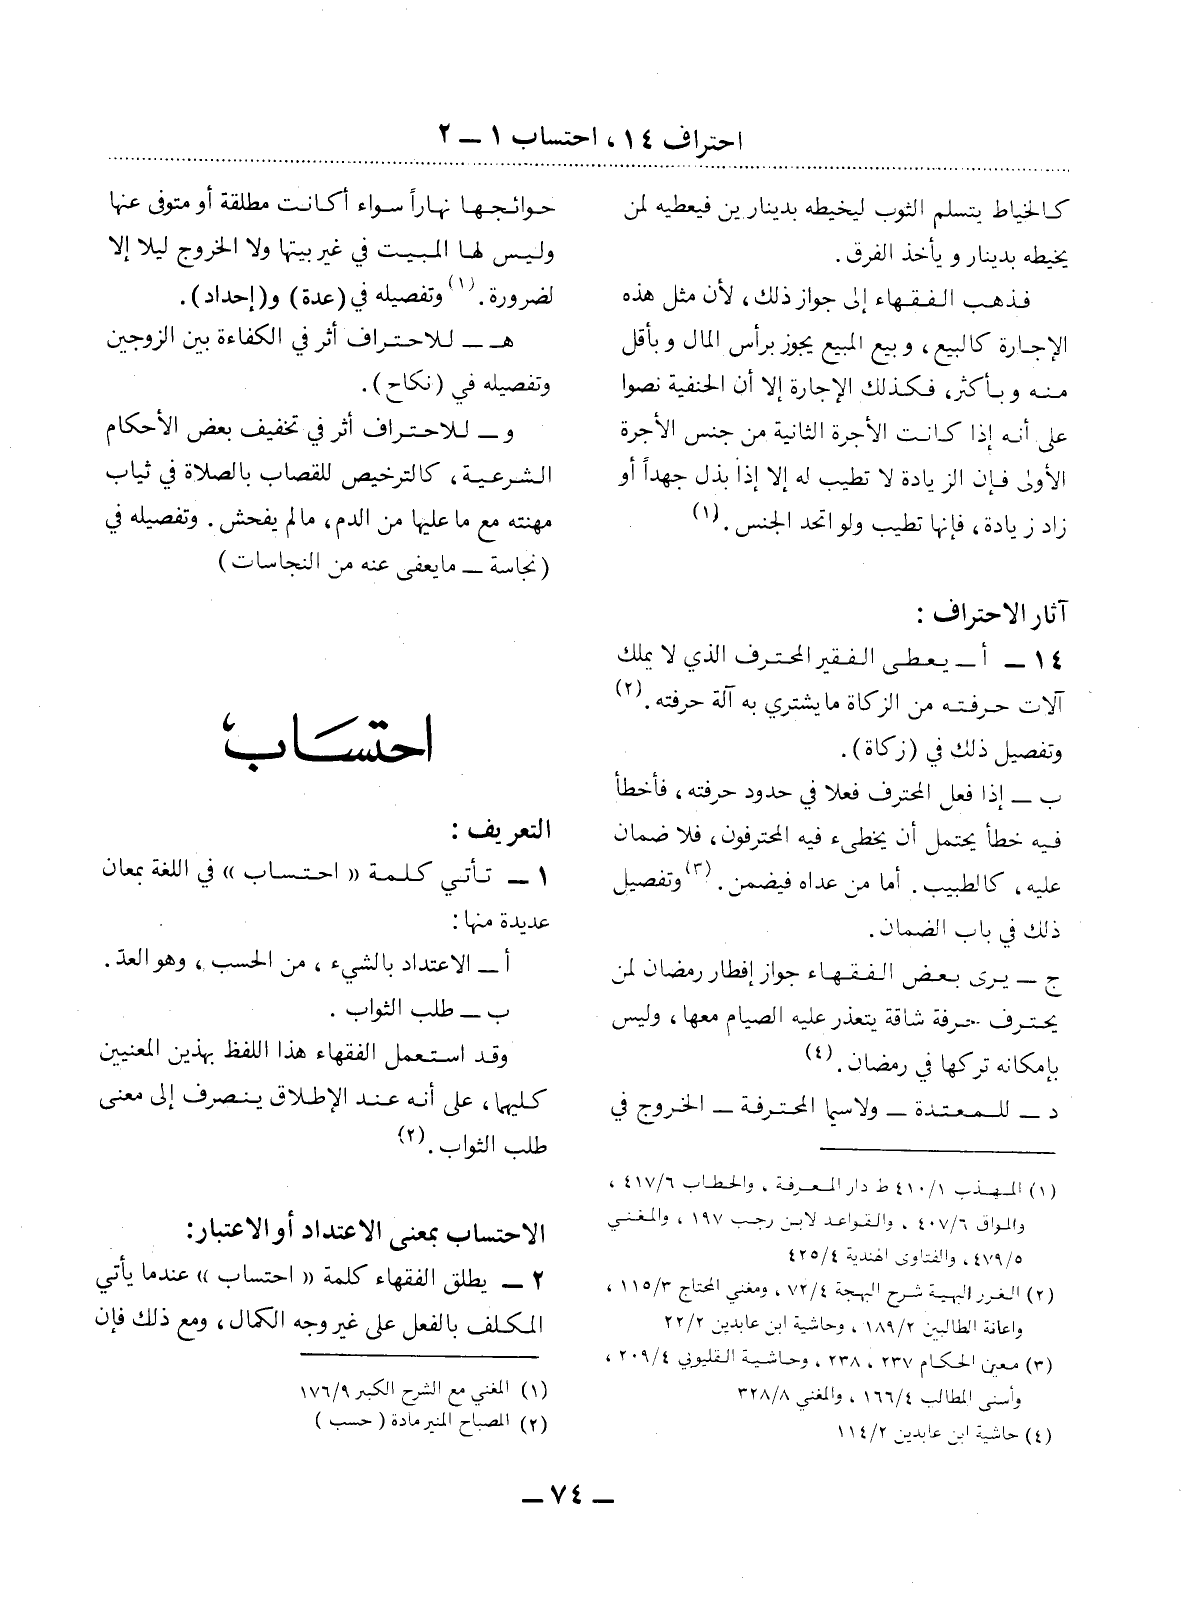 احتراف ١٤ ، احتساب ١ ــ ٢
كالخياط يتسلم الثوب ليخيطه بدينارين فيعطيه لمن
يخيطه بدينار ويأخذ الفرق .
فذهب الفقهاء إلى جواز ذلك ، لأن مثل هذه
الإجارة كالبيع ، وبيع المبيع يجوز برأس المال وبأقل
منه وبأكثر، فكذلك الإجارة إلا أن الحنفية نصوا
على أنه إذا كانت الأجرة الثانية من جنس الأجرة
الأولى فإن الزيادة لا تطيب له إلا إذا بذل جهداً أو
زاد زيادة ، فإنها تطيب ولو اتحد الجنس . (١)
آثار الاحتراف :
١٤ ــ أ ــ يعطى الفقير المحترف الذي لا يملك
آلات حرفته من الزكاة ما يشتري به آلة حرفته . (٢)
وتفصيل ذلك في (زكاة) .
ب ــ إذا فعل المحترف فعلا في حدود حرفته ، فأخطأ
فيه خطأ يحتمل أن يخطىء فيه المحترفون ، فلا ضمان
عليه ، كالطبيب . أما من عداه فيضمن . (٣) وتفصيل
ذلك في باب الضمان .
ج ــ يرى بعض الفقهاء جواز إفطار رمضان لمن
يحترف حرفة شاقة يتعذر عليه الصيام معها ، وليس
بإمكانه تركها في رمضان . (٤)
د ــ للمعتدة ــ ولاسيما المحترفة ــ الخروج في
(١) المهذب ٤١٠/١ ط دار المعرفة ، والحطاب ٤١٧/٦ ،
والمواق ٤٠٧/٦ ، والقواعد لابن رجب ١٩٧ ، والمغني
٤٧٩/٥ ، والفتاوى الهندية ٤٢٥/٤
(٢) الغرر البهية شرح البهجة ٧٢/٤ ، ومغني المحتاج ١١٥/٣ ،
واعانة الطالبين ١٨٩/٢ ، وحاشية ابن عابدين ٢٢/٢
(٣) معين الحكام ٢٣٧ ، ٢٣٨ ، وحاشية القليوبي ٢٠٩/٤ ،
وأسنى المطالب ١٦٦/٤ ، والمغني ٣٢٨/٨
(٤) حاشية ابن عابدين ١١٤/٢
حوائجها نهاراً سواء أكانت مطلقة أو متوفى عنها
وليس لها المبيت في غير بيتها ولا الخروج ليلا إلا
لضرورة . (١) وتفصيله في (عدة) و(إحداد) .
هـ ــ للاحتراف أثر في الكفاءة بين الزوجين
وتفصيله في (نكاح) .
و ــ للاحتراف أثر في تخفيف بعض الأحكام
الشرعية ، كالترخيص للقصاب بالصلاة في ثياب
مهنته مع ما عليها من الدم ، مالم يفحش . وتفصيله في
(نجاسة ــ مايعفى عنه من النجاسات)
احتساب
التعريف :
١ ــ تأتي كلمة «احتساب» في اللغة بمعان
عديدة منها :
أ ــ الاعتداد بالشيء ، من الحسب ، وهو العدّ .
ب ــ طلب الثواب .
وقد استعمل الفقهاء هذا اللفظ بهذين المعنيين
كليهما ، على أنه عند الإطلاق ينصرف إلى معنى
طلب الثواب . (٢)
الاحتساب بمعنى الاعتداد أو الاعتبار :
٢ ــ يطلق الفقهاء كلمة «احتساب» عندما يأتي
المكلف بالفعل على غير وجه الكمال ، ومع ذلك فإن
(١) المغني مع الشرح الكبير ١٧٦/٩
(٢) المصباح المنير مادة (حسب)
ــ ٧٤ ــ